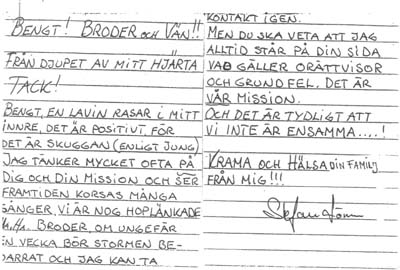 BENGT! BRODER OCH VÄN!!
FRÅN DJUPET AV MITT HJÄRTA
TACK!
BENGT, EN LAVIN RASAR I MITT
INNRE, DET ÄR POSITIVT, FÖR
DET ÄR SKUGGAN (ENLIGT JUNG)
JAG TÄNKER MYCKET OFTA PÅ
DIG OCH DIN MISSION OCH SER
FRAMTIDEN KORSAS MÅNGA
GÅNGER, VI ÄR NOG HOPLÄNKADE
HA. HA. BRODER, OM UNGEFÄR
EN VECKA BÖR STORMEN BE-
DARRAT OCH JAG KAN TA
KONTAKT IGEN.
MEN DU SKA VETA ATT JAG
ALLTID STÅR PÅ DIN SIDA
VAD GÄLLER ORÄTTVISOR
OCH GRUND FEL. DET ÄR
VÅR MISSION.
OCH DET ÄR TYDLIGT ATT
VI INTE ÄR ENSAMMA....!
KRAMA OCH HÄLSA DIN FAMILJ
FRÅN MIG!!!
Stefan